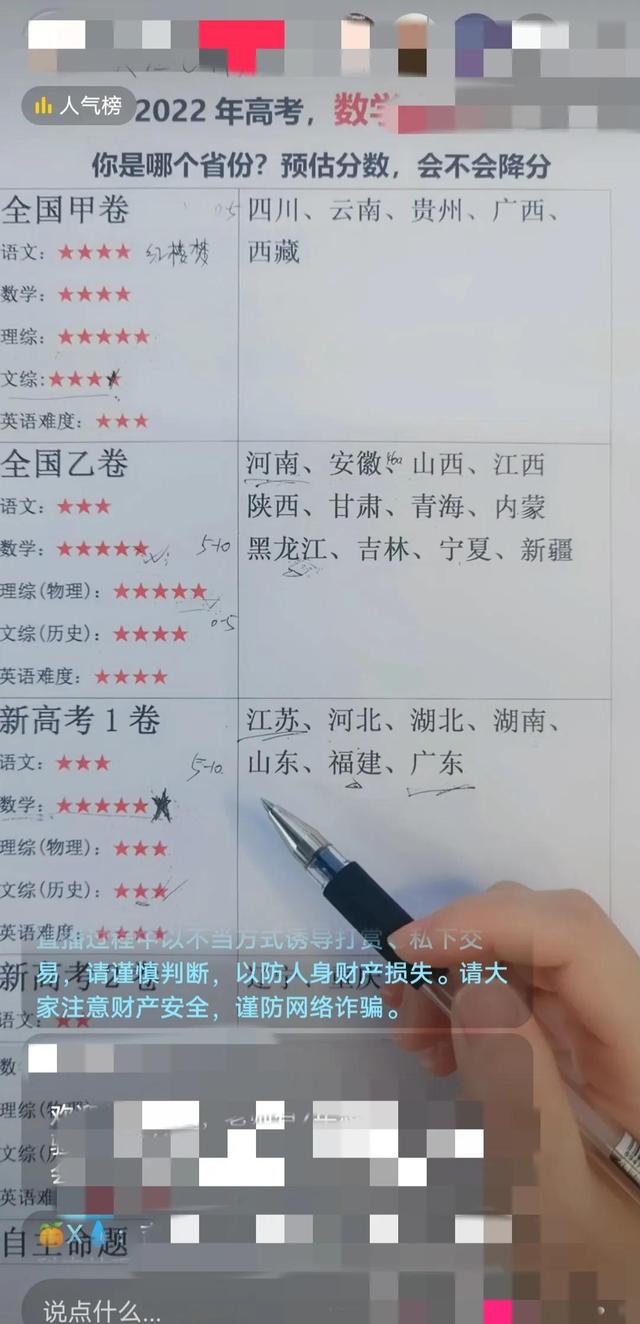 人气榜
2022年高考，数学
你是哪个省份？预估分数，会不会降分
全国甲卷
四川、云南、贵州、广西、
西藏
语文：★★★★ 红楼梦
数学：★★★★
理综：★★★★★
文综:★★★★
英语难度：★★★
全国乙卷
河南、安徽、山西、江西
陕西、甘肃、青海、内蒙
黑龙江、吉林、宁夏、新疆
语文：★★★
数学：★★★★★ 5-10
理综(物理)：★★★★★
文综(历史)：★★★★ 0-5
英语难度：★★★★
新高考1卷
江苏、河北、湖北、湖南、
山东、福建、广东
语文：★★★ 5-10
数学：★★★★★★
理综(物理)：★★★
文综(历史)：★★★
英语难度：★★★★
直播过程中以不当方式诱导打赏、私下交
易，请谨慎判断，以防人身财产损失。请大
家注意财产安全，谨防网络诈骗。
新高考2卷
语文：★★
数
理综(物理)：
文综(历
英语难
自主命题
说点什么...